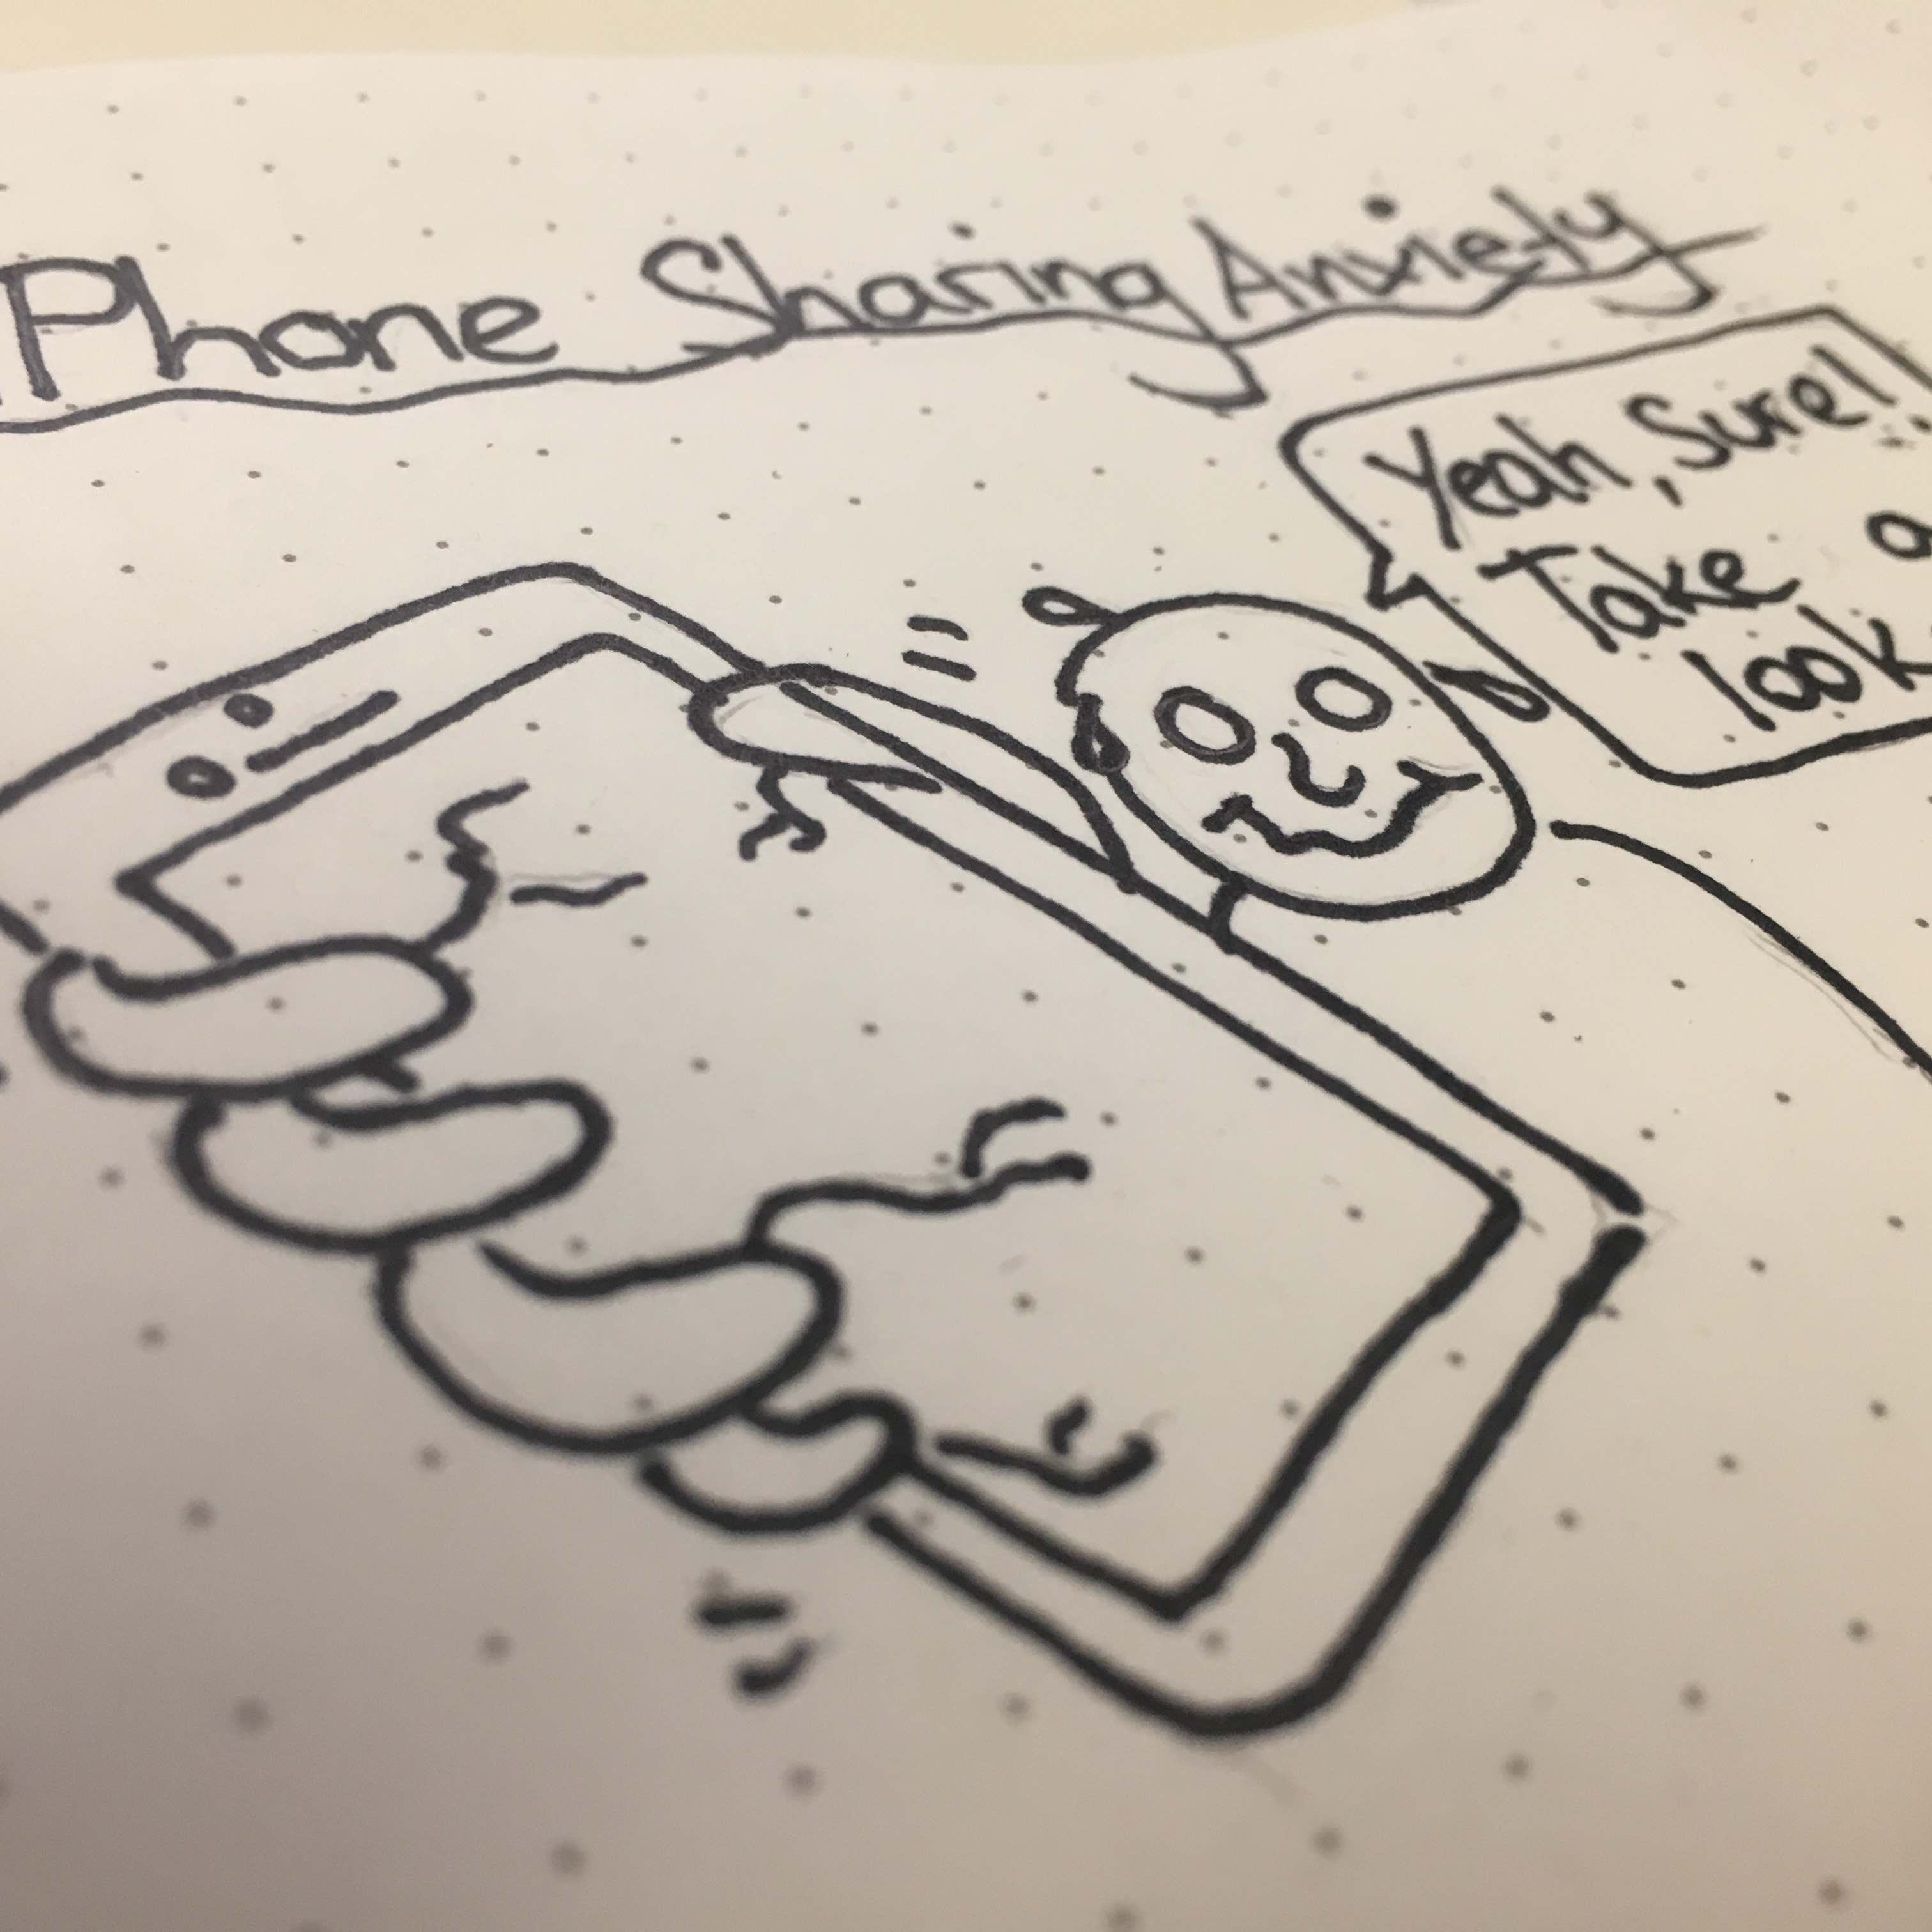 Phone Sharing Anxiety
Yeah, Sure!
Take a
look